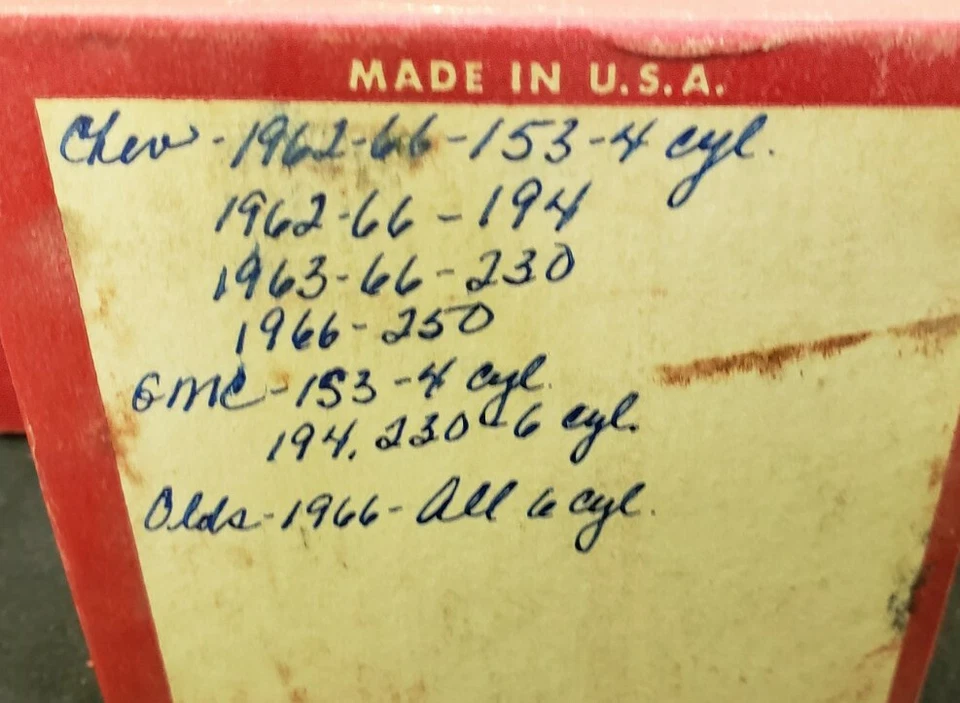 MADE IN U.S.A.
Chev - 1962-66 - 153 - 4 cyl.
1962-66 - 194
1963-66 - 230
1966 - 250
GMC - 153 - 4 cyl.
194, 230 - 6 cyl.
Olds - 1966 - All 6 cyl.